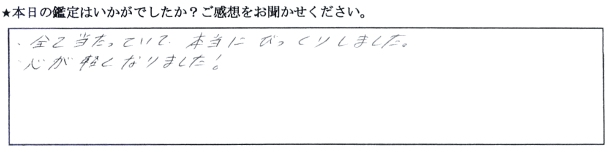 ★本日の鑑定はいかがでしたか？ご感想をお聞かせください。
・全て当たっていて、本当にびっくりしました。
・心が軽くなりました！